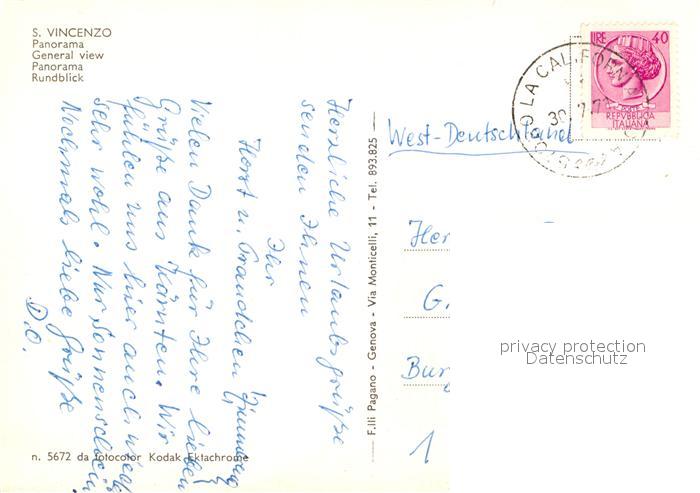 S. VINCENZO
Panorama
General view
Panorama
Rundblick
Herzliche Urlaubsgrüße
senden Ihnen
Ihr
Horst u. Traudchen
Vielen Dank für Ihre lieben
Grüße aus Kärnten. Wir
fühlen uns hier auch
sehr wohl. Nur Sonnenschein.
Nochmals liebe Grüße
D.O.
n. 5672 da fotocolor Kodak Ektachrome
F.lli Pagano - Genova - Via Monticelli, 11 - Tel. 893.825
LIRE 40
REPVBBLICA
ITALIANA
LA CALIFORNIA
30
West-Deutschland
Her
G.
Bur
1
privacy protection
Datenschutz